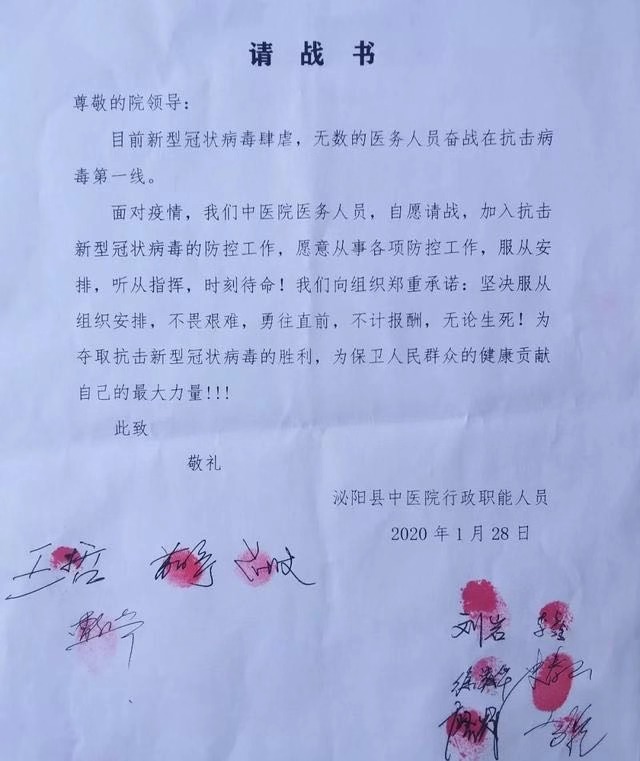 请战书
尊敬的院领导：
目前新型冠状病毒肆虐，无数的医务人员奋战在抗击病
毒第一线。
面对疫情，我们中医院医务人员，自愿请战，加入抗击
新型冠状病毒的防控工作，愿意从事各项防控工作，服从安
排，听从指挥，时刻待命！我们向组织郑重承诺：坚决服从
组织安排，不畏艰难，勇往直前，不计报酬，无论生死！为
夺取抗击新型冠状病毒的胜利，为保卫人民群众的健康贡献
自己的最大力量!!!
此致
敬礼
泌阳县中医院行政职能人员
2020 年 1 月 28 日
王哲
刘岩